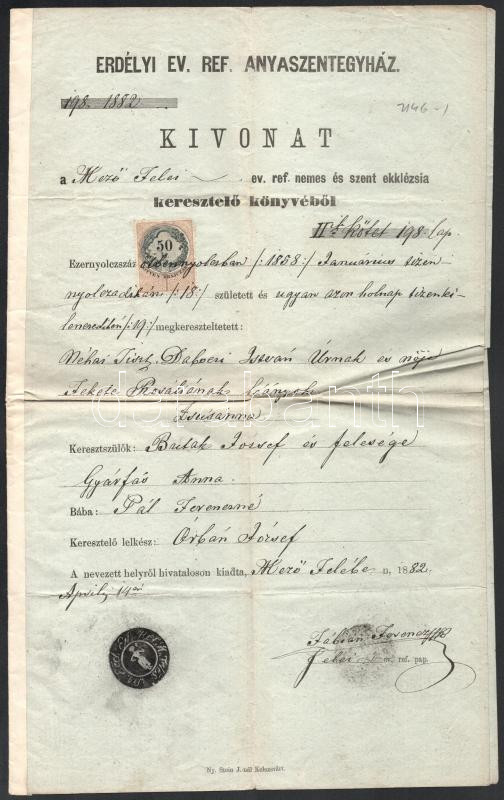 ERDÉLYI EV. REF. ANYASZENTEGYHÁZ.
198. 1882
2146-1
KIVONAT
a Mező Felei ev. ref. nemes és szent ekklézsia
keresztelő könyvéből
IIk kötet 198 lap.
50
Ezernyolczszáz ötvennyolczban /:1858:/ Januárius tizen
nyolczadikán /:18:/ született és ugyan azon holnap tizenki-
lenczedikén /:19:/ megkereszteltetett:
Néhai Tiszt. István Úrnak és nője
Fekete Rozáliának leányok
Zsuzsánna
Keresztszülők: József és felesége
Gyárfás Anna.
Bába: Pál Ferenczné
Keresztelő lelkész: Orbán József
A nevezett helyről hivatalosan kiadta, Mező Felében, 1882.
April 14én
Fábián Ferencz
Felei ev. ref. pap.
Ny. Stein J.-nál Kolozsvárt.
darabanth